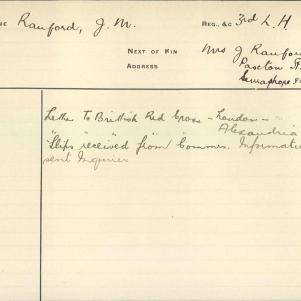 ME Ranford, J. M. REG., &C 3rd L. H
NEXT OF KIN Mrs J Ranford
ADDRESS Paxton St
Semaphore
Letter To Brittish Red Cross - London -
Alexandria
"Slips" received from Commr. Informatio
sent Inquirer